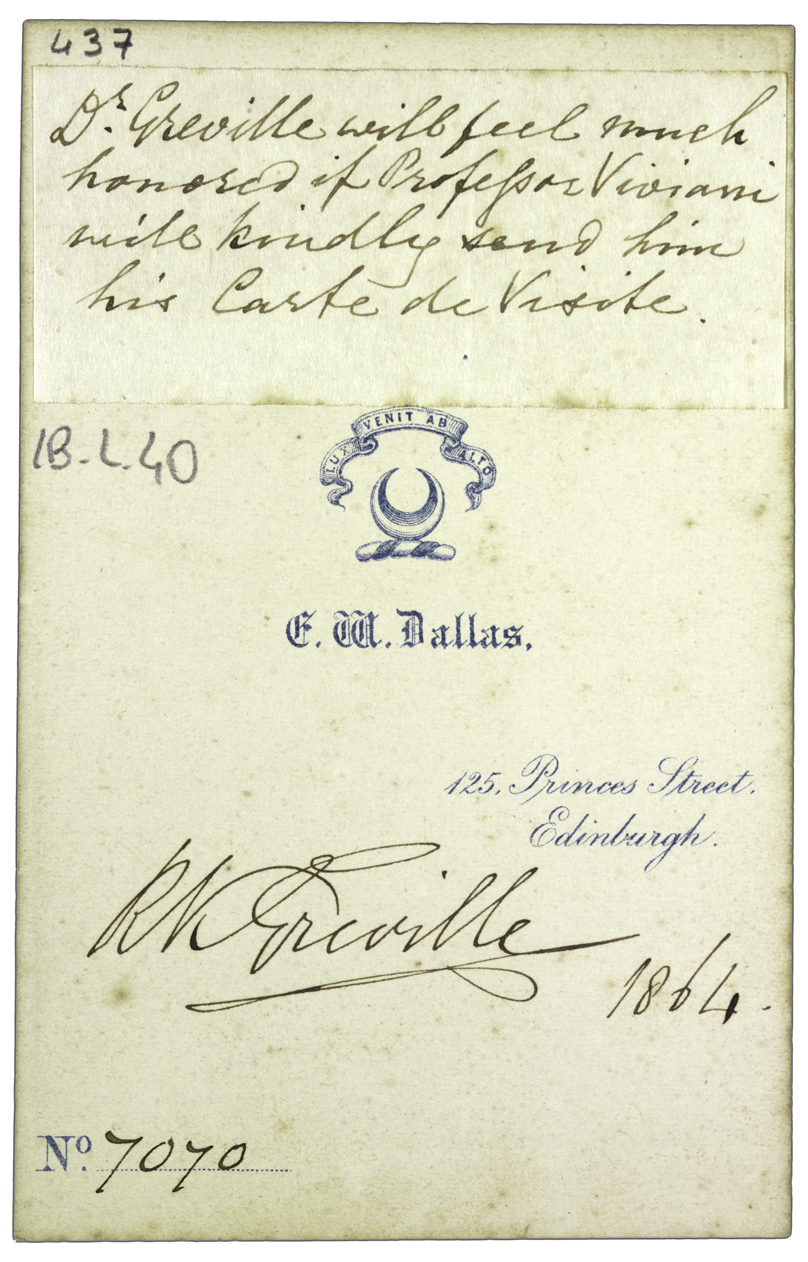 437
Dr. Greville will feel much
honored if Professor Viviani
will kindly send him
his Carte de Visite.
18.L.40
LUX VENIT AB ALTO
E. W. Dallas.
125, Princes Street.
Edinburgh.
RK Greville
1864.
No. 7070